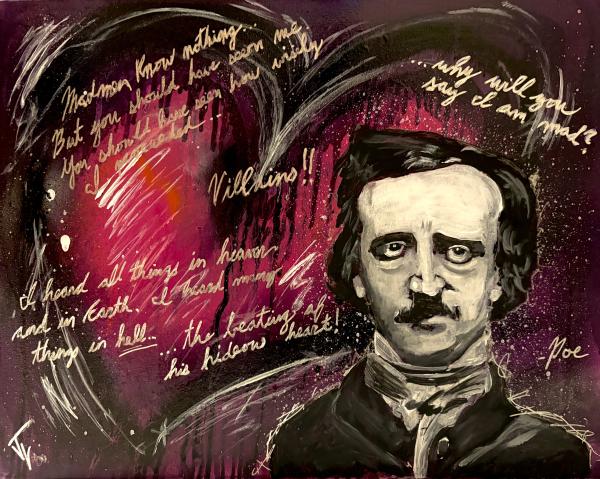 Madmen Know nothing...
But you should have seen me
You should have seen how wisely
I proceeded...
...why will you
say I am mad?
Villains!!
I heard all things in heaven
and in Earth. I heard many
things in hell...
...the beating of
his hideous heart!
-Poe